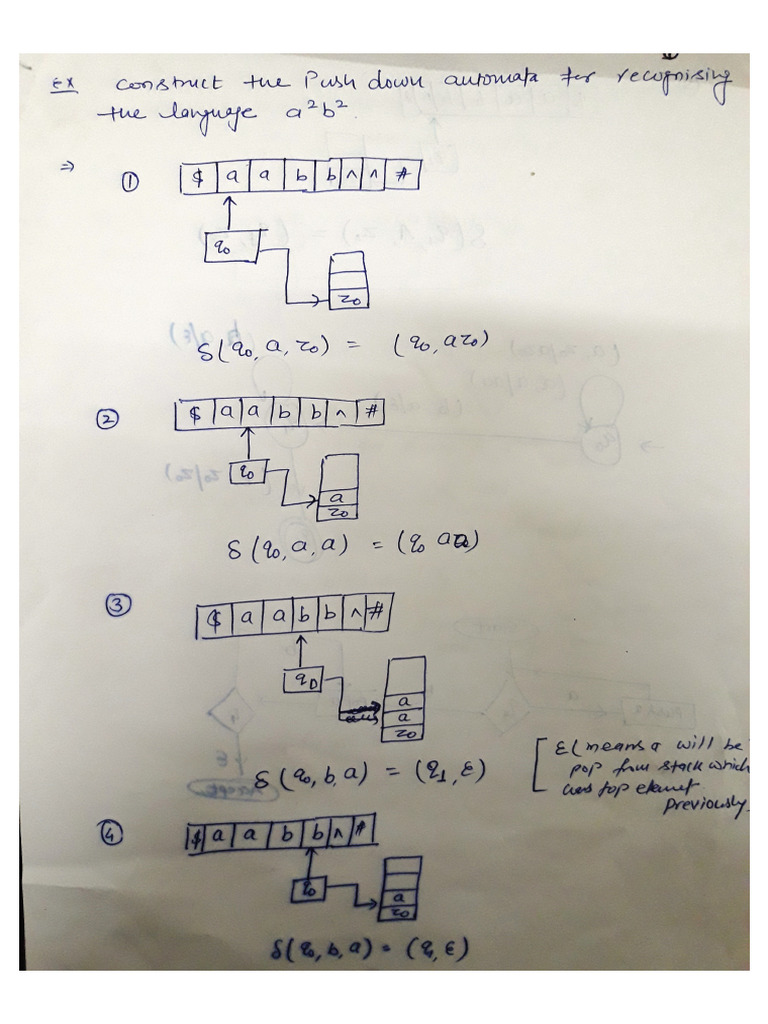 Ex Construct the Push down automata for recognising
the language a²b².
⇒ ① $ a a b b ^ ^ #
q0
z0
δ(q0, a, z0) = (q0, az0)
② $ a a b b ^ #
q0
a
z0
δ(q0, a, a) = (q0 aa)
③ $ a a b b ^ #
q0
a
a
z0
δ(q0, b, a) = (q1, ε)
[ε(means a will be
pop from stack which
was top element
previously.
④ $ a a b b ^ #
q0
a
z0
δ(q0, b, a) = (q1, ε)